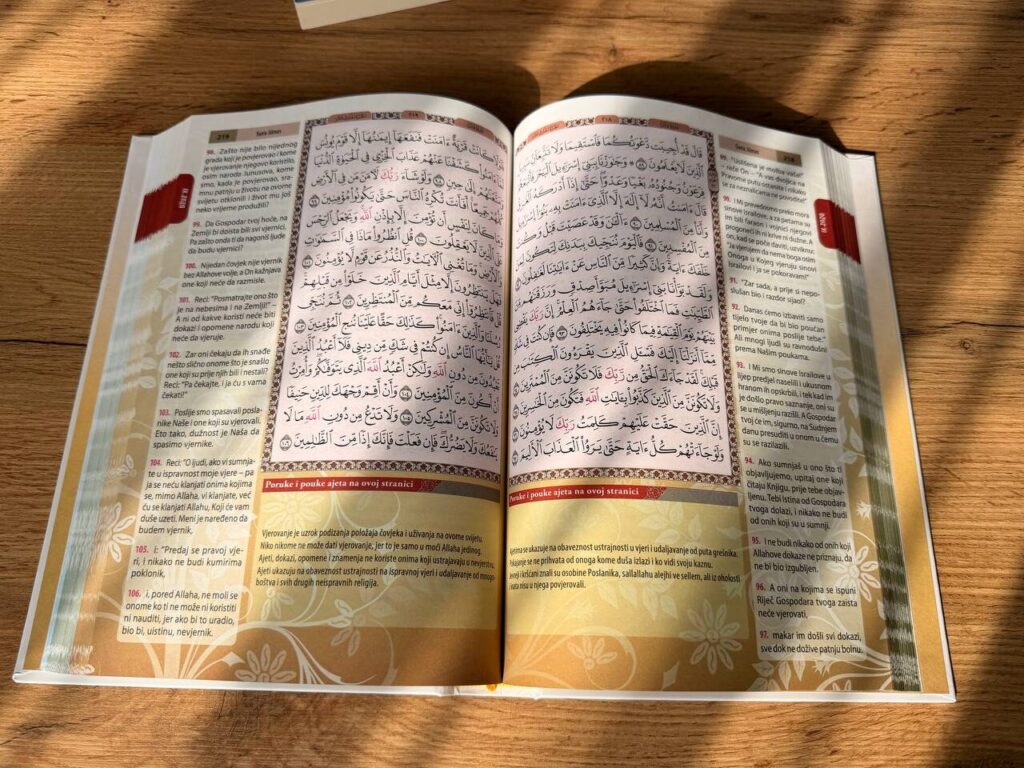 218 Sura Jūnus
٢١٨
قَالَ قَدْ أُجِيبَت دَّعْوَتُكُمَا فَاسْتَقِيمَا وَلَا تَتَّبِعَانِّ
سَبِيلَ الَّذِينَ لَا يَعْلَمُونَ ۝٨٩ وَجَاوَزْنَا بِبَنِي إِسْرَائِيلَ الْبَحْرَ
فِرْعَوْنُ وَجُنُودُهُ بَغْيًا وَعَدْوًا حَتَّى إِذَا أَدْرَكَهُ الْغَرَقُ
قَالَ آمَنتُ أَنَّهُ لَا إِلَهَ إِلَّا الَّذِي آمَنَتْ بِهِ بَنُو إِسْرَائِيلَ
وَأَنَا مِنَ الْمُسْلِمِينَ ۝٩٠ آلْآنَ وَقَدْ عَصَيْتَ قَبْلُ وَكُنتَ
مِنَ الْمُفْسِدِينَ ۝٩١ فَالْيَوْمَ نُنَجِّيكَ بِبَدَنِكَ لِتَكُونَ
خَلْفَكَ آيَةً وَإِنَّ كَثِيرًا مِّنَ النَّاسِ عَنْ آيَاتِنَا لَغَافِلُونَ
وَلَقَدْ بَوَّأْنَا بَنِي إِسْرَائِيلَ مُبَوَّأَ صِدْقٍ وَرَزَقْنَاهُم
الطَّيِّبَاتِ فَمَا اخْتَلَفُوا حَتَّى جَاءَهُمُ الْعِلْمُ إِنَّ رَبَّكَ
بَيْنَهُمْ يَوْمَ الْقِيَامَةِ فِيمَا كَانُوا فِيهِ يَخْتَلِفُونَ ۝٩٣ فَإِن كُنتَ فِي
مِّمَّا أَنزَلْنَا إِلَيْكَ فَاسْأَلِ الَّذِينَ يَقْرَءُونَ الْكِتَابَ مِن
قَبْلِكَ لَقَدْ جَاءَكَ الْحَقُّ مِن رَّبِّكَ فَلَا تَكُونَنَّ مِنَ الْمُمْتَرِينَ
وَلَا تَكُونَنَّ مِنَ الَّذِينَ كَذَّبُوا بِآيَاتِ اللَّهِ فَتَكُونَ مِنَ الْخَاسِرِينَ
إِنَّ الَّذِينَ حَقَّتْ عَلَيْهِمْ كَلِمَتُ رَبِّكَ لَا يُؤْمِنُونَ
وَلَوْ جَاءَتْهُمْ كُلُّ آيَةٍ حَتَّى يَرَوُا الْعَذَابَ الْأَلِيمَ
89. "Uslišena je molba vaša!"
– reče On – "A vas dvojica na
Pravome putu ostanite i nikako
se za neznalicama ne povodite!"
90. I Mi prevedosmo preko mora
sinove Israilove, a za petama su
im bili faraon i vojnici njegovi
progoneći ih ni krive ni dužne. A
on, kad se poče daviti, uzviknu:
"Ja vjerujem da nema boga osim
Onoga u Kojeg vjeruju sinovi
Israilovi i ja se pokoravam!"
91. "Zar sada, a prije si nepo-
slušan bio i razdor sijao!?
92. Danas ćemo izbaviti samo
tijelo tvoje da bi bio poučan
primjer onima poslije tebe."
Ali mnogi ljudi su ravnodušni
prema Našim poukama.
93. I Mi smo sinove Israilove u
lijep predjel naselili i ukusnom
hranom ih opskrbili, i tek kad im
je došlo pravo saznanje, oni su
se u mišljenju razišli. A Gospodar
tvoj će im, sigurno, na Sudnjem
danu presuditi u onom u čemu
su se razilazili.
94. Ako sumnjaš u ono što ti
objavljujemo, upitaj one koji
čitaju Knjigu, prije tebe objav-
ljenu. Tebi Istina od Gospodara
tvoga dolazi, i nikako ne budi
od onih koji su u sumnji.
95. I ne budi nikako od onih koji
Allahove dokaze ne priznaju, da
ne bi bio izgubljen.
96. A oni na kojima se ispuni
Riječ Gospodara tvoga zaista
neće vjerovati,
97. makar im došli svi dokazi,
sve dok ne dožive patnju bolnu.
Poruke i pouke ajeta na ovoj stranici
se ukazuje na obaveznost ustrajnosti u vjeri i udaljavanje od puta grešnika.
Pokajanje se ne prihvata od onoga kome duša izlazi i ko vidi svoju kaznu.
i kršćani znali su osobine Poslanika, sallallahu alejhi ve sellem, ali iz oholosti
nisu u njega povjerovali.
219 Sura Jūnus
٢١٩
كَانَتْ قَرْيَةٌ آمَنَتْ فَنَفَعَهَا إِيمَانُهَا إِلَّا قَوْمَ يُونُسَ
كَشَفْنَا عَنْهُمْ عَذَابَ الْخِزْيِ فِي الْحَيَاةِ الدُّنْيَا
إِلَى حِينٍ ۝٩٨ وَلَوْ شَاءَ رَبُّكَ لَآمَنَ مَن فِي الْأَرْضِ
جَمِيعًا أَفَأَنتَ تُكْرِهُ النَّاسَ حَتَّى يَكُونُوا مُؤْمِنِينَ
وَمَا كَانَ لِنَفْسٍ أَن تُؤْمِنَ إِلَّا بِإِذْنِ اللَّهِ وَيَجْعَلُ الرِّجْسَ
لَا يَعْقِلُونَ ۝١٠٠ قُلِ انظُرُوا مَاذَا فِي السَّمَاوَاتِ
وَالْأَرْضِ وَمَا تُغْنِي الْآيَاتُ وَالنُّذُرُ عَن قَوْمٍ لَّا يُؤْمِنُونَ ۝١٠١
فَهَلْ يَنتَظِرُونَ إِلَّا مِثْلَ أَيَّامِ الَّذِينَ خَلَوْا مِن قَبْلِهِمْ
قُلْ فَانتَظِرُوا إِنِّي مَعَكُم مِّنَ الْمُنتَظِرِينَ ۝١٠٢ ثُمَّ نُنَجِّي
رُسُلَنَا وَالَّذِينَ آمَنُوا كَذَلِكَ حَقًّا عَلَيْنَا نُنجِ الْمُؤْمِنِينَ ۝١٠٣
قُلْ يَا أَيُّهَا النَّاسُ إِن كُنتُمْ فِي شَكٍّ مِّن دِينِي فَلَا أَعْبُدُ الَّذِينَ
تَعْبُدُونَ مِن دُونِ اللَّهِ وَلَكِنْ أَعْبُدُ اللَّهَ الَّذِي يَتَوَفَّاكُمْ وَأُمِرْتُ
أَنْ أَكُونَ مِنَ الْمُؤْمِنِينَ ۝١٠٤ وَأَنْ أَقِمْ وَجْهَكَ لِلدِّينِ حَنِيفًا
وَلَا تَكُونَنَّ مِنَ الْمُشْرِكِينَ ۝١٠٥ وَلَا تَدْعُ مِن دُونِ اللَّهِ مَا لَا
يَنفَعُكَ وَلَا يَضُرُّكَ فَإِن فَعَلْتَ فَإِنَّكَ إِذًا مِّنَ الظَّالِمِينَ ۝١٠٦
98. Zašto nije bilo nijednog
grada koji je povjerovao i kome
je vjerovanje njegovo koristilo,
osim naroda Junusova, kome
smo, kada je povjerovao, sra-
mnu patnju u životu na ovome
svijetu otklonili i život mu još
neko vrijeme produžili?
99. Da Gospodar tvoj hoće, na
Zemlji bi doista bili svi vjernici.
Pa zašto onda ti da nagoniš ljude
da budu vjernici?
100. Nijedan čovjek nije vjernik
bez Allahove volje, a On kažnjava
one koji neće da razmisle.
101. Reci: "Posmatrajte ono što
je na nebesima i na Zemlji!" –
A ni od kakve koristi neće biti
dokazi i opomene narodu koji
neće da vjeruje.
102. Zar oni čekaju da ih snađe
nešto slično onome što je snašlo
one koji su prije njih bili i nestali?
Reci: "Pa čekajte, i ja ću s vama
čekati!"
103. Poslije smo spasavali posla-
nike Naše i one koji su vjerovali.
Eto tako, dužnost je Naša da
spasimo vjernike.
104. Reci: "O ljudi, ako vi sumnja-
te u ispravnost moje vjere – pa
ja se neću klanjati onima kojima
se, mimo Allaha, vi klanjate, već
ću se klanjati Allahu, Koji će vam
duše uzeti. Meni je naređeno da
budem vjernik,
105. i: "Predaj se pravoj vje-
ri, i nikako ne budi kumirima
poklonik,
106. i, pored Allaha, ne moli se
onome ko ti ne može ni koristiti
ni nauditi, jer ako bi to uradio,
bio bi, uistinu, nevjernik.
Poruke i pouke ajeta na ovoj stranici
Vjerovanje je uzrok podizanja položaja čovjeka i uživanja na ovome svijetu.
Niko nikome ne može dati vjerovanje, jer to je samo u moći Allaha jedinog.
Ajeti, dokazi, opomene i znamenja ne koriste onima koji ustrajavaju u nevjerstvu.
Ajeti ukazuju na obaveznost ustrajnosti na ispravnoj vjeri i udaljavanje od mnogo-
boštva i svih drugih neispravnih religija.